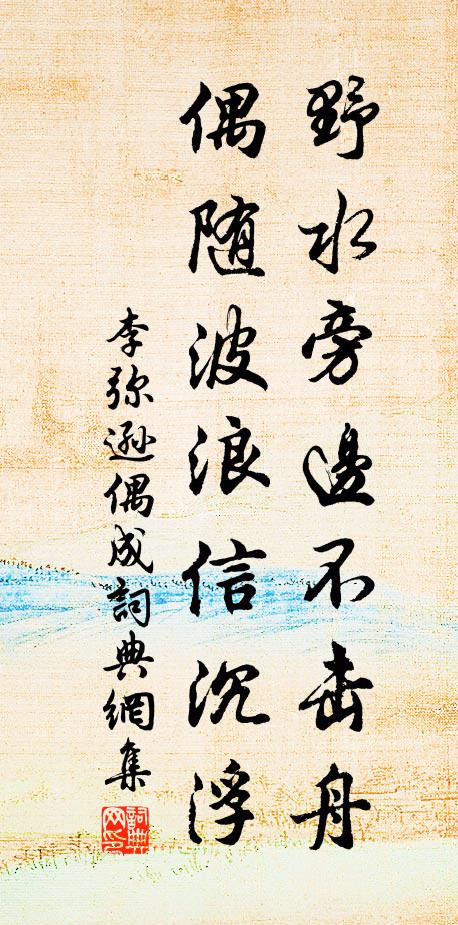 野水旁邊不击舟
偶随波浪信沉浮
李弥遜偶成詞典網集
詞典
网印